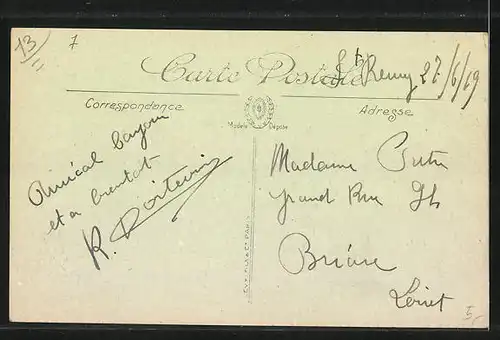 13
7
Carte Postale
St Remy 27/6/19
Correspondance
Adresse
Modèle Déposé
Amical bonjour
et a bientot
R. Poitevin
Madame
Grand Rue
Briare
Loiret
5